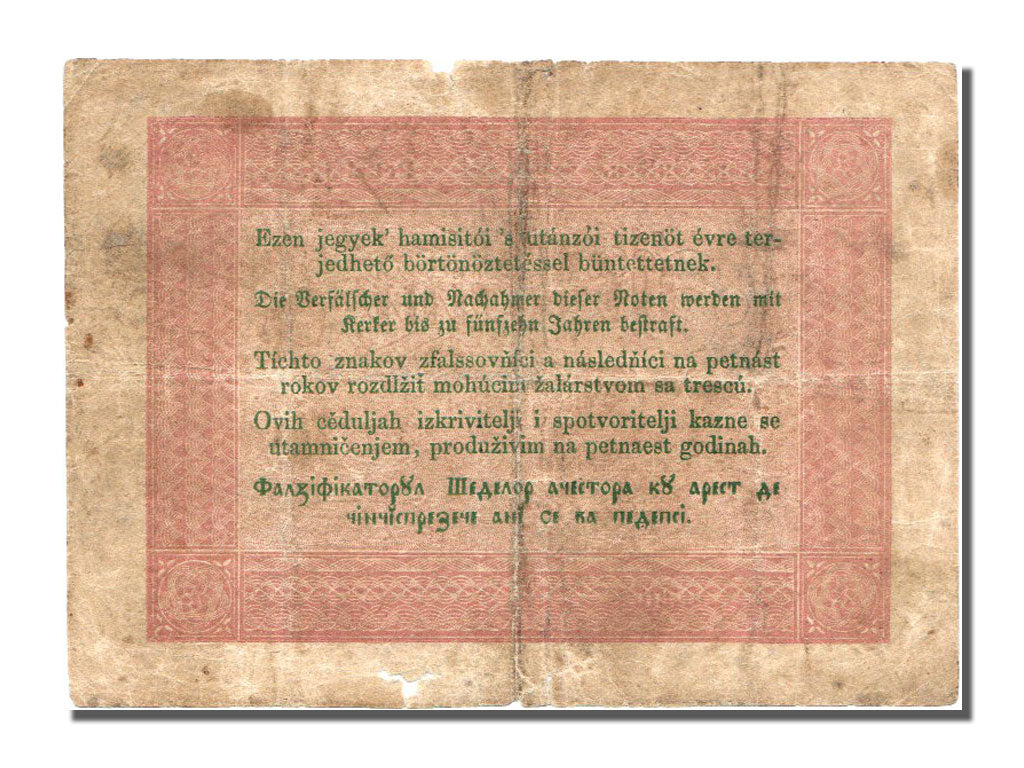 Ezen jegyek' hamisitói 's utánzói tizenöt évre ter-
jedhető börtönöztetéssel büntettetnek.
Die Verfälscher und Nachahmer dieser Noten werden mit
Kerker bis zu fünfzehn Jahren bestraft.
Tíchto znakov zfalssovňíci a následňíci na petnást
rokov rozdlžiť mohúcim žalárstvom sa trescú.
Ovih cěduljah izkrivitelji i spotvoritelji kazne se
utamničenjem, produživim na petnaest godinah.
Фалꙁіфікаторꙋл Шеделор ачестора кꙋ арест де
чінчіспреꙁече анї се ва педепсі.